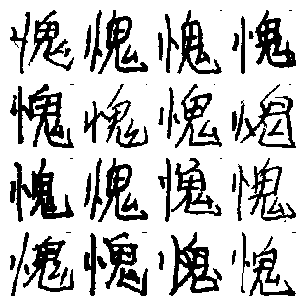 愧愧愧愧
愧愧愧愧
愧愧愧愧
愧愧愧愧